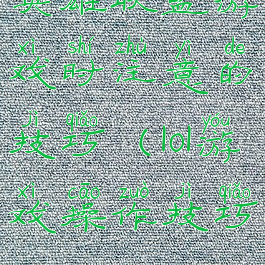 英雄联盟游
xì shí zhù yì de
戏时注意的
jì qiǎo yóu
技巧（lol游
xì cāo zuò jì qiǎo
戏操作技巧